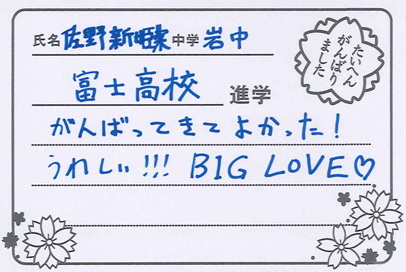 氏名 佐野新 中学 岩中
たいへん
がんばり
ました
富士高校 進学
がんばってきてよかった!
うれしい!!! BIG LOVE♡